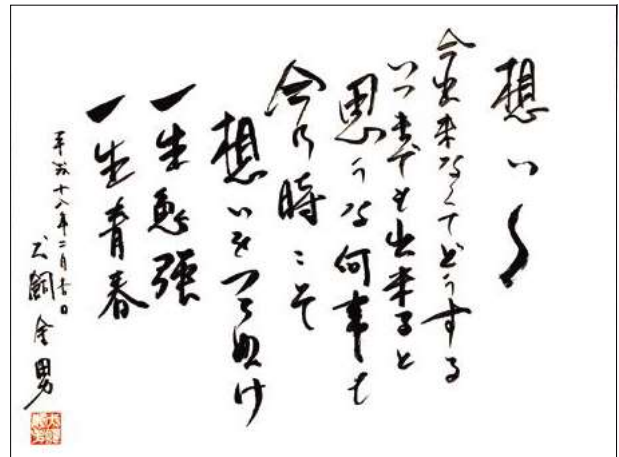 想い
今出来なくてどうする
いつまでも出来ると
思うな何事も
今乃時こそ
想いをつらぬけ
一生勉強
一生青春
平成十八年二月吉日
犬飼